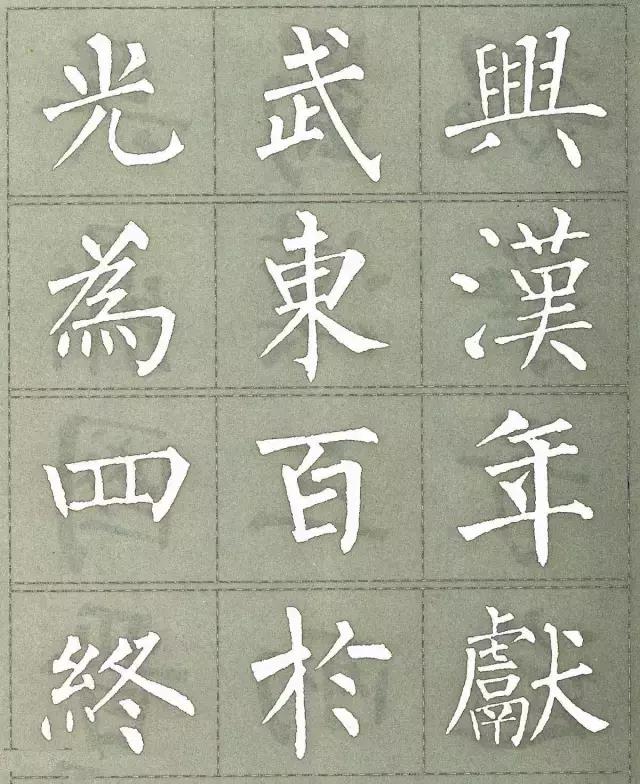 光武興
為東漢
四百年
終於獻